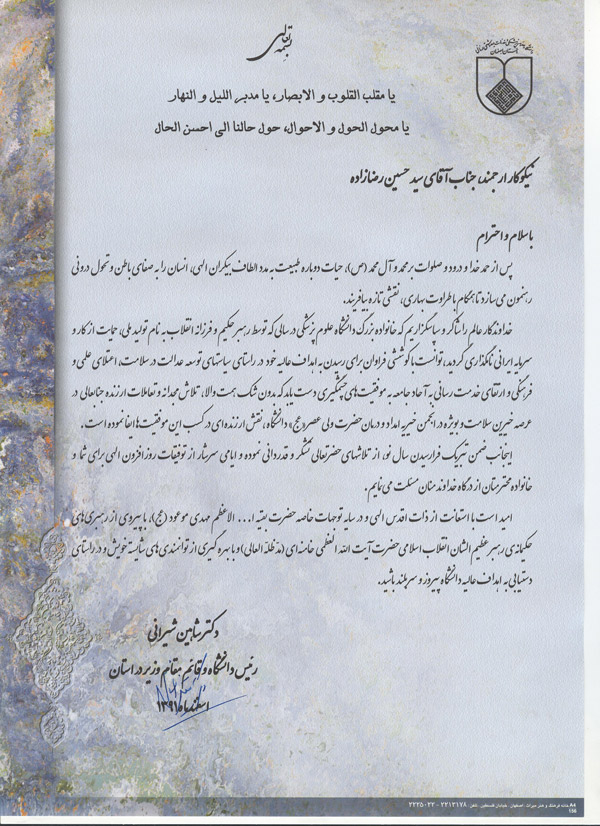 بسمه تعالی
یا مقلب القلوب و الابصار، یا مدبر اللیل و النهار
یا محول الحول و الاحوال، حول حالنا الی احسن الحال
نیکوکار ارجمند، جناب آقای سید حسین رضازاده
با سلام و احترام
پس از حمد خدا و درود و صلوات بر محمد و آل محمد (ص)، حیات دوباره طبیعت به مدد الطاف بیکران الهی، انسان را به صفای باطن و تحول درونی
رهنمون می سازد تا هنگام با طراوت بهاری، نقشی تازه بیافریند.
خداوندگار عالم را شاکر و سپاسگزاریم که خانواده بزرگ دانشگاه علوم پزشکی در سالی که توسط رهبر حکیم و فرزانه انقلاب به نام تولید ملی، حمایت از کار و
سرمایه ایرانی نامگذاری گردید، توانست با کوششی فراوان برای رسیدن به اهداف عالیه خود در راستای سیاستهای توسعه عدالت در سلامت، اعتلای علمی و
فرهنگی و ارتقای خدمت رسانی به آحاد جامعه به موفقیت های چشمگیری دست یابد که بدون شک همت والا، تلاش مجدانه و تعاملات ارزنده جنابعالی در
عرصه خیرین سلامت و بویژه در انجمن خیریه امداد و درمان حضرت ولی عصر «عج» دانشگاه، نقش ارزنده ای در کسب این موفقیت‌ها ایفا نموده است.
اینجانب ضمن تبریک فرارسیدن سال نو، از تلاشهای حضرتعالی تشکر و قدردانی نموده و ایامی سرشار از توفیقات روز افزون الهی برای شما و
خانواده محترمتان از درگاه خداوند منان مسئلت می نمایم.
امید است با استعانت از ذات اقدس الهی و در سایه توجهات خاصه حضرت بقیه ا... الاعظم مهدی موعود (عج)، با پیروی از رهبری های
حکیمانه ی رهبر عظیم الشان انقلاب اسلامی حضرت آیت الله العظمی خامنه ای (مد ظله العالی) و با بهره گیری از توانمندی های شایسته خویش و در راستای
دستیابی به اهداف عالیه دانشگاه پیروز و سربلند باشید.
دکتر شاهین شیرانی
رئیس دانشگاه و قائم مقام وزیر در استان
اسفند ماه ۱۳۹۱
A4 خانه فرهنگ و هنر میراث، اصفهان، خیابان فلسطین، تلفن: ۲۲۱۳۱۷۸ - ۲۲۲۵۰۲۲
156